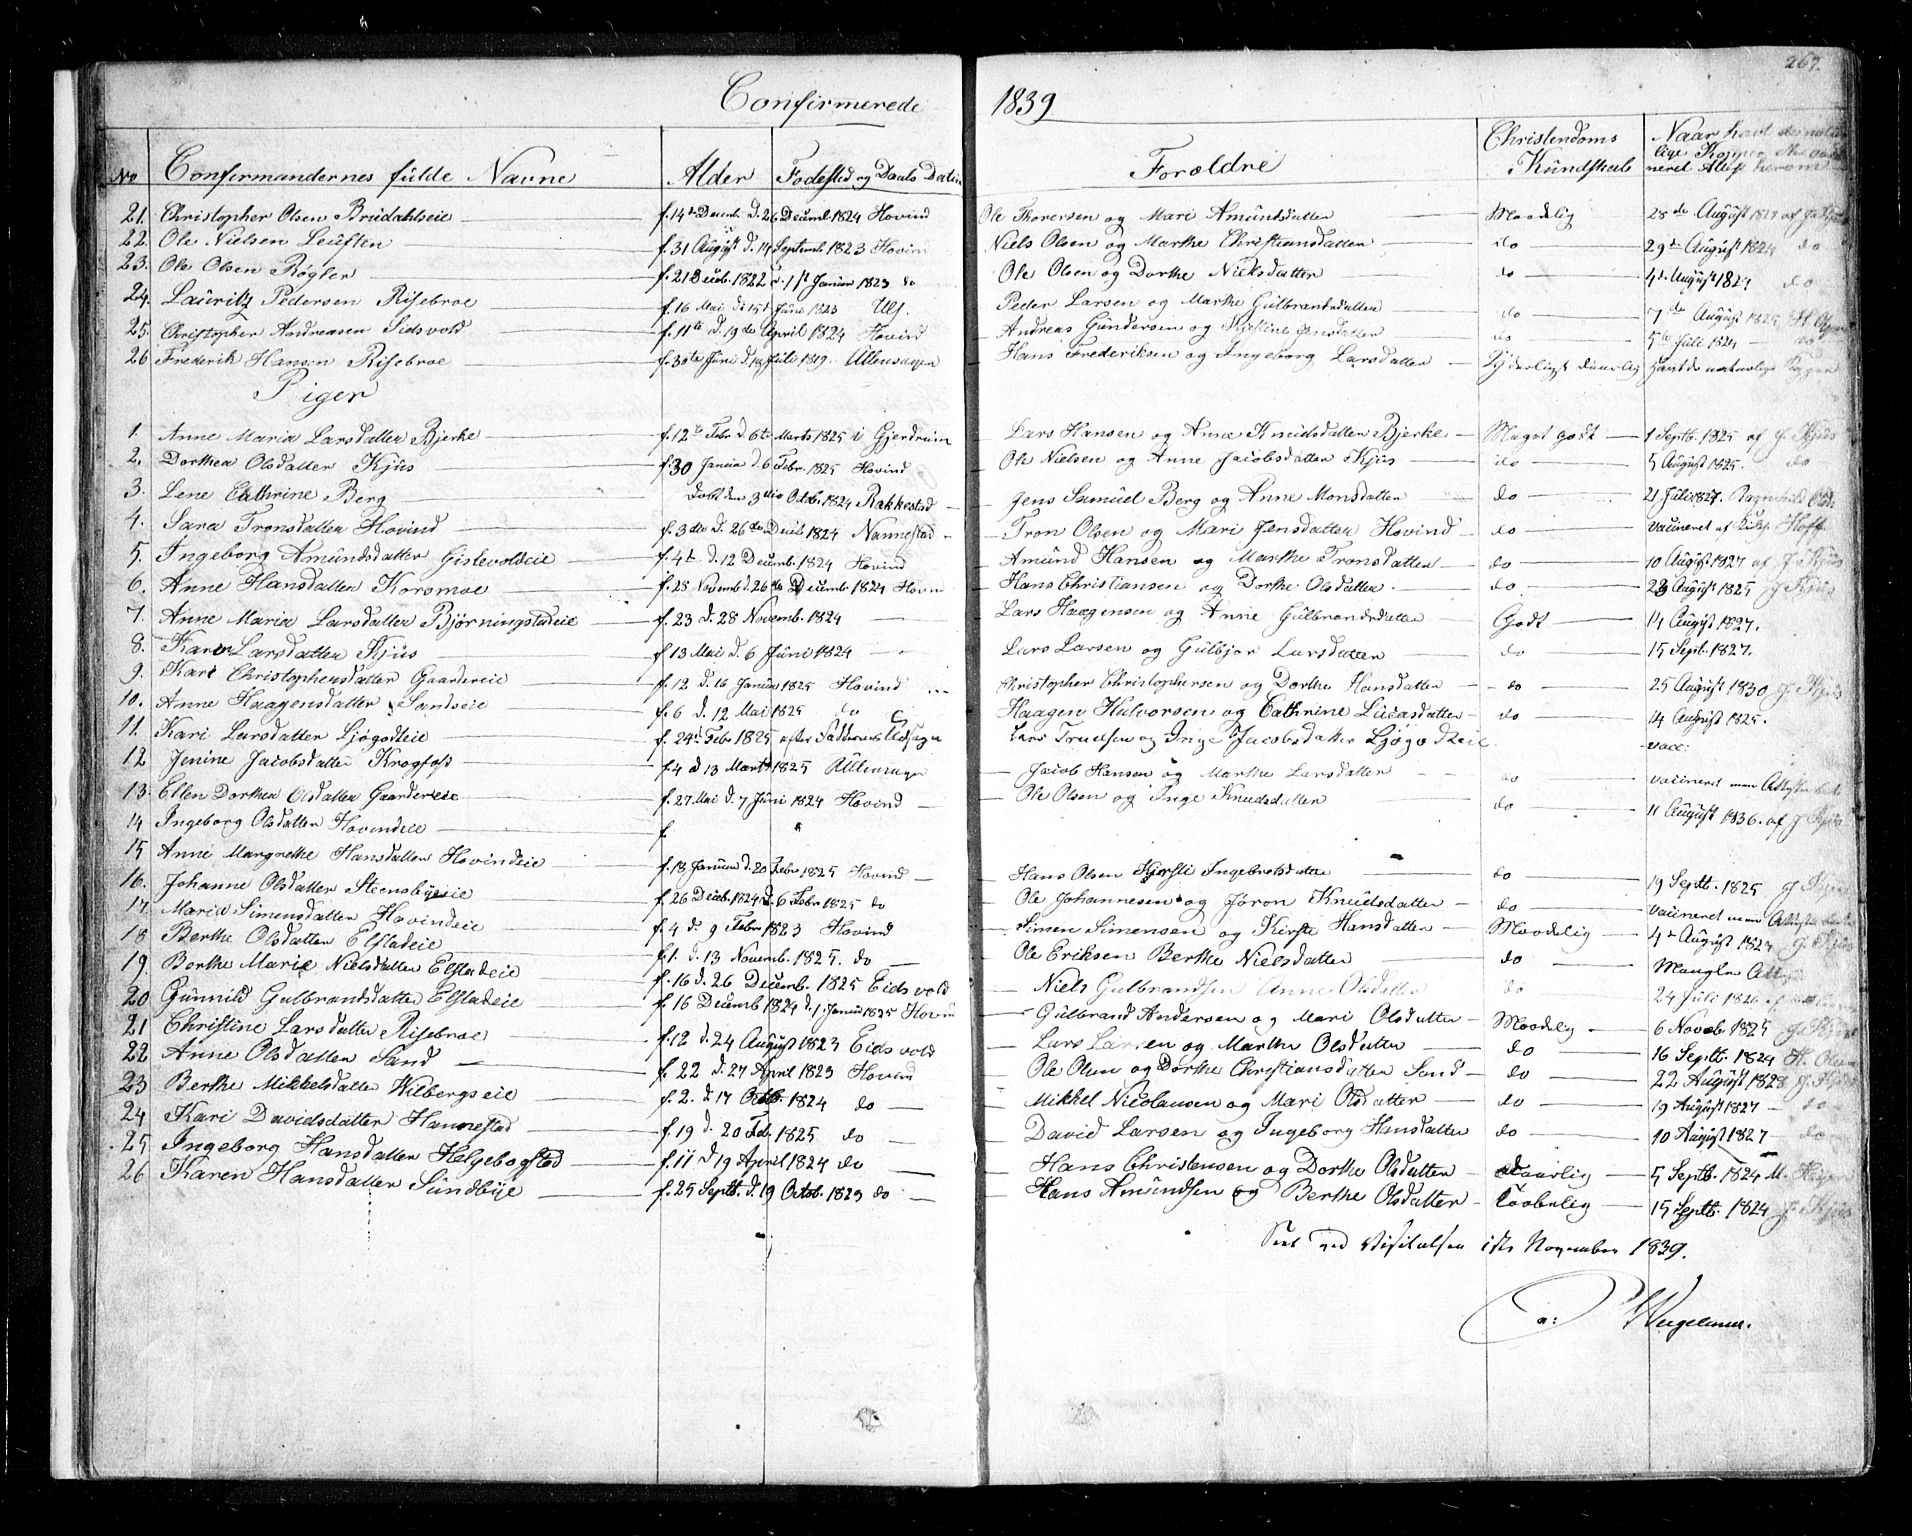 267.
Confirmerede 1839.
No Confirmandernes fulde Navne Alder Fødested og Daabs Datum Forældre Christendoms Kundskab Naar havt de naturlige Kopper
21. Christopher Olsen Brudahlseie f. 14de Decemb. d. 26 Decemb. 1824 Hovind Ole Thorersen og Mari Amundsdatter Maadelig 28de August 1827 af J. Kjus
22. Ole Nielsen Leuften f. 31 August d. 14 Septemb. 1823 Hovind Niels Olsen og Marthe Christiansdatter do 29de August 1824 do
23. Ole Olsen Røgler f. 21 Decb. 1822 d. 1st Januar 1823 do Ole Olsen og Dorthe Nielsdatter do 4de August 1824 do
24. Lauritz Pedersen Risebroe f. 16 Mai d. 15d Juni 1823 Ull. Peder Larsen og Marthe Gulbrandsdatter do 7de August 1825
25. Christopher Andreasen Sidsvold f. 11te d. 19de April 1824 Hovind Andreas Gundersen og Kjestine Jensdatter do 5te Juli 1824 do
26 Frederik Hansen Risebroe f. 30te Juni d. 18 Juli 1819 Ullensager Hans Frederiksen og Ingeborg Larsdatter Yderligst daarlig havt de naturlige Kopper
Piger
1. Anne Maria Larsdatter Bjerke f. 12te Febr d. 6te Marts 1825 i Gjerdrum Lars Hansen og Anne Knudsdatter Bjerke Meget godt 1 Septb. 1825 af J. Kjus
2. Dorthea Olsdatter Kjus f. 30 Januar d. 6 Febr. 1825 Hovind Ole Nielsen og Anne Jacobsdatter Kjus do 5 August 1825. do
3. Lene Cathrine Berg døbt den 3die Octob. 1824 Rakkestad Jens Samuel Berg og Anne Monsdatter do 21 Juli 1827. Ragnhild
4. Sara Tronsdatter Hovind f. 3die d. 26de Decb 1824 Nannestad Tron Olsen og Mari Jensdatter Hovind do vaccineret af Hoff
5. Ingeborg Amundsdatter Gislevoldeie f. 4de d. 12 Decemb. 1824 Hovind Amund Hansen og Marthe Tronsdatter do 10 August 1827 af J. Kjus
6. Anne Hansdatter Korsmoe f. 28 Novemb d. 26de Decemb. 1824 Hovind Hans Christiansen og Dorthe Olsdatter do 23 August 1825 J. Kjus
7. Anne Maria Larsdatter Bjørningstadeie f. 23 d. 28 Novemb. 1824 Lars Haagensen og Anne Gulbrandsdatter Godt 14 August 1827.
8. Karen Larsdatter Kjus f. 13 Mai d. 6 Juni 1824 Lars Larsen og Gulbjor Larsdatter do 15 Sept. 1827.
9. Kari Christophersdatter Gaardereie f. 12 d. 16 Januar 1825 Hovind Christopher Christophersen og Dorthe Hansdatter do 25 August 1830 J. Kjus
10. Anne Haagensdatter Sandseie f. 6 d. 12 Mai 1825 do Haagen Halvorsen og Cathrine Lucasdatter do 14 August 1825.
11. Kari Larsdatter Ljøgodteie f. 24de Febr 1825 efter Fadderens Udsagn Lars Truelsen og Inge Jacobsdatter Ljøgodteie vacc:
12 Jenine Jacobsdatter Krogfoss f. 4 d 13 Marts 1825 Ullensager Jacob Hansen og Marthe Larsdatter do vaccineret men Attesten
13. Ellen Dorthea Olsdatter Gaardereie f. 27 Mai d. 7 Juni 1824 Hovind Ole Olsen og Inge Knudsdatter do 11 August 1836. af J. Kjus
14 Ingeborg Olsdatter Hovindeie f.
15 Anne Margrethe Hansdatter Hovindeie f. 18 Januar d. 20 Febr 1825 Hovind Hans Olsen Kjersti Ingebretsdatter do 19 Septb. 1825 J. Kjus
16. Johanne Olsdatter Steensbyeeie f. 26 Decb. 1824 d. 6 Febr 1825 do Ole Johannesen og Jøron Knudsdatter do vaccineret men Attesten
17. Maria Simensdatter Hovindeie f. 4 d. 9 Febr 1823 Hovind Simen Simensen og Kirsti Hansdatter Maadelig 4de August 1824 J. Kjus
18 Berthe Olsdatter Elstadeie f. 1. d. 13 Novemb. 1825. do Ole Eriksen Berthe Nielsdatter do Mangler Attest
19 Berthe Marie Nielsdatter Elstadeie f. 16 d. 26 Decemb. 1825 Eidsvold Niels Gulbrandsen Anne Olsdatter do 24 Juli 1826
20 Gunnild Gulbrandsdatter Elstadeie f. 16 Decemb 1824 d. 1 Januar 1825 Hovind Gulbrand Andersen og Mari Olsdatter Maadelig 6 Novb. 1825 J. Kjus
21 Christine Larsdatter Risebroe f. 12 d. 24 August 1823 Eidsvold Lars Larsen og Marthe Olsdatter do 16 Septb. 1824 H. Olsen
22 Anne Olsdatter Sand f. 22 d. 27 April 1823 Hovind Ole Olsen og Dorthe Christiansdatter Sand do 22 August 1828 J. Kjus
23 Berthe Mikkelsdatter Vilbergseie f. 2. d. 17 Octb. 1824 do Mikkel Nicolausen og Mari Olsdatter do 19 August 1827 do
24 Kari Davidsdatter Hannestad f. 19 d. 20 Feb. 1825 do David Larsen og Ingeborg Hansdatter do 10 August 1827 do
25 Ingeborg Hansdatter Helgebostad f. 11 d 19 April 1824 do Hans Christensen og Dorthe Olsdatter daarlig 5 Septb. 1824
26 Karen Hansdatter Sundbye f. 25 Septb. d. 19 Octob. 1823 do Hans Amundsen og Berthe Olsdatter Lovbelig 15 Septb. 1824 J. Kjus
Seet ved Visitatsen November 1839.
Wegelman.